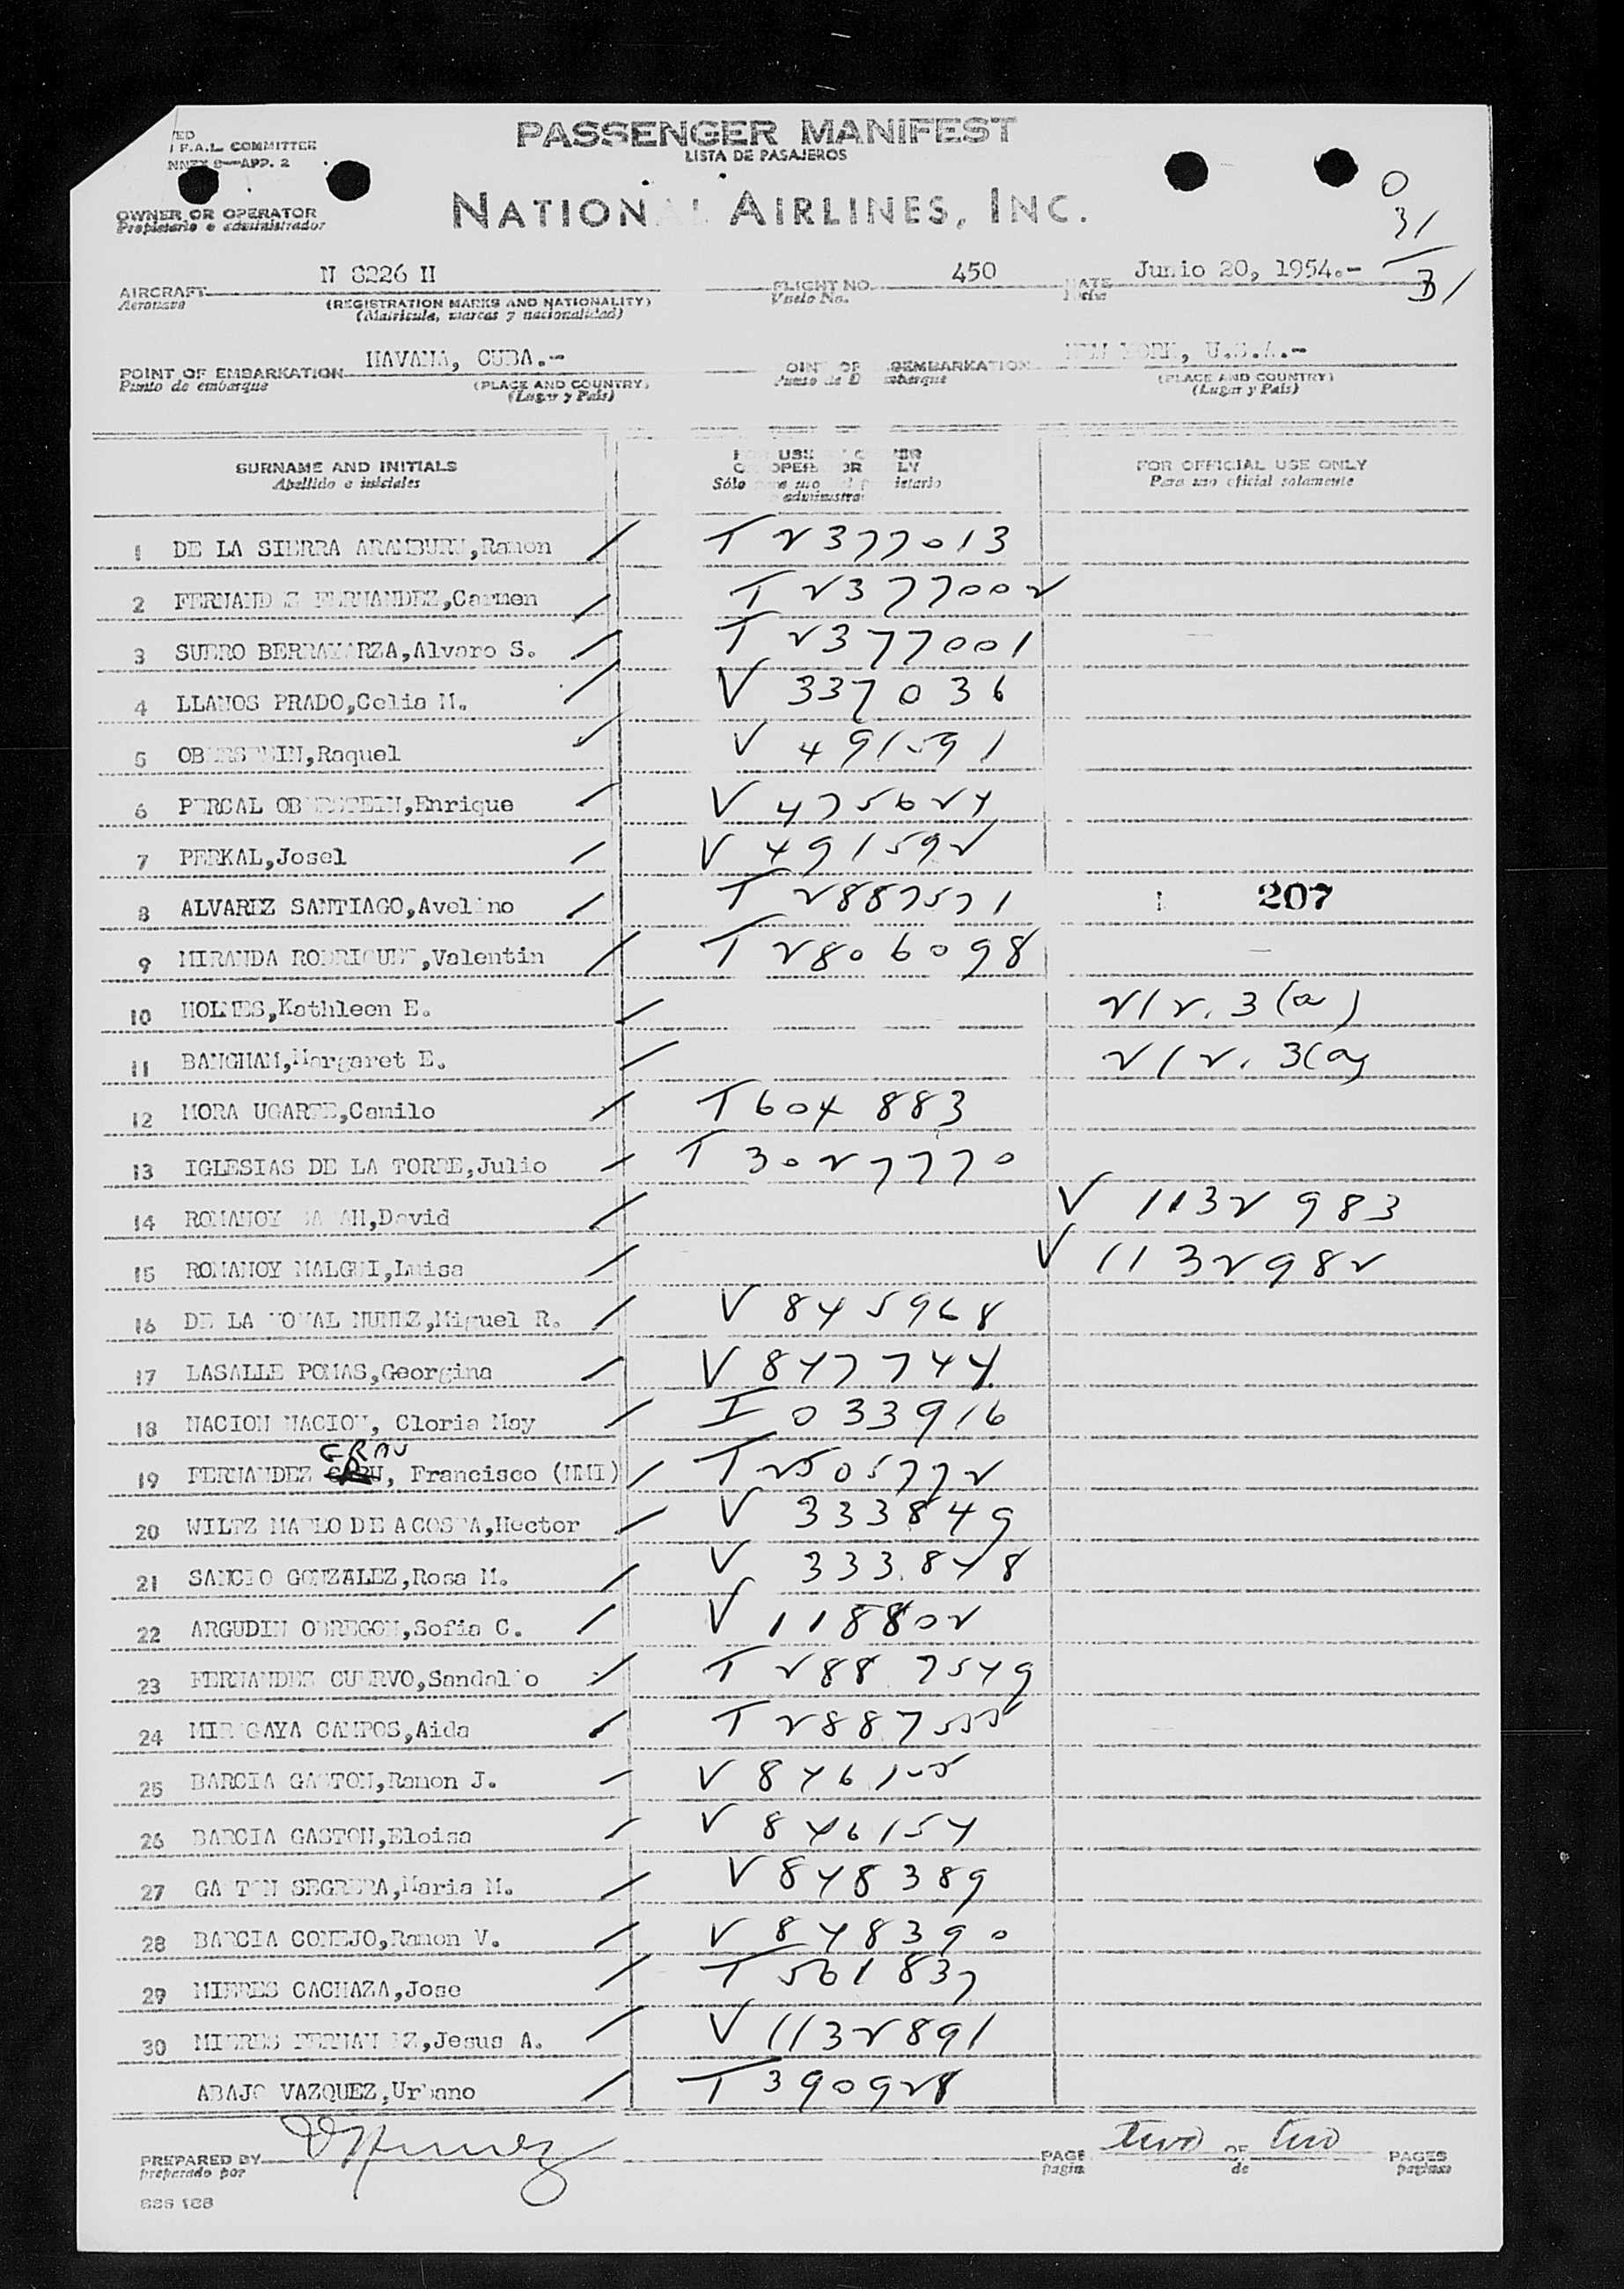 PASSENGER MANIFEST
LISTA DE PASAJEROS
F.A.L. COMMITTEE
APP. 2
NATIONAL AIRLINES, INC.
OWNER OR OPERATOR
Propietario o administrador
0
31
31
AIRCRAFT N 8226 H FLIGHT NO. 450 DATE Junio 20, 1954.-
Aeronave (REGISTRATION MARKS AND NATIONALITY) Vuelo No. Fecha
(Matricula, marcas y nacionalidad)
POINT OF EMBARKATION HAVANA, CUBA.- NEW YORK, U.S.A.-
Punto de embarque (PLACE AND COUNTRY) (PLACE AND COUNTRY)
(Lugar y Pais) (Lugar y Pais)
SURNAME AND INITIALS
Apellido e iniciales
FOR OFFICIAL USE ONLY
Para uso oficial solamente
1 DE LA SIERRA ARAMBURU,Ramon / T 2377013
2 FERNANDEZ FERNANDEZ,Carmen / T 2377002
3 SUERO ,Alvaro S. / T 2377001
4 LLANOS PRADO,Celia M. / V 337036
5 OBERSTEIN,Raquel / V 491591
6 PERCAL OBERSTEIN,Enrique / V 475624
7 PERKAL,Josel / V 491592
8 ALVAREZ SANTIAGO,Avelino / T 2887571 207
9 MIRANDA RODRIGUEZ,Valentin / T 2806098
10 HOLMES,Kathleen E. / 212.3(a)
11 BANGHAM,Margaret E. / 212.3(a)
12 MORA UGARTE,Camilo / T 604883
13 IGLESIAS DE LA TORRE,Julio / T 3027770
14 ROMANOY ,David / V 1132983
15 ROMANOY MALGUI,Luisa / V 1132982
16 DE LA NUNEZ,Miguel R. / V 845968
17 LASALLE POMAS,Georgina / V 847744
18 NACION NACION, Gloria May / I 033916
GRAU
19 FERNANDEZ , Francisco (NMI) / T 2505772
20 WILTZ MARLO DE ACOSTA,Hector / V 333849
21 SANCIO GONZALEZ,Rosa M. / V 333848
22 ARGUDIN OBREGON,Sofia C. / V 118802
23 FERNANDEZ CUERVO,Sandalio / T 2887549
24 CAMPOS,Aida / T 2887555
25 BARCIA GASTON,Ramon J. / V 846155
26 BARCIA GASTON,Eloisa / V 846154
27 GASTON SEGRERA,Maria M. / V 848389
28 BARCIA CONEJO,Ramon V. / V 848390
29 MIERES CACHAZA,Jose / T 561837
30 MIERES FERNANDEZ,Jesus A. / V 1132891
ABAJO VAZQUEZ,Urbano / T 390928
PREPARED BY PAGE two OF two PAGES
preparado por pagina de paginas